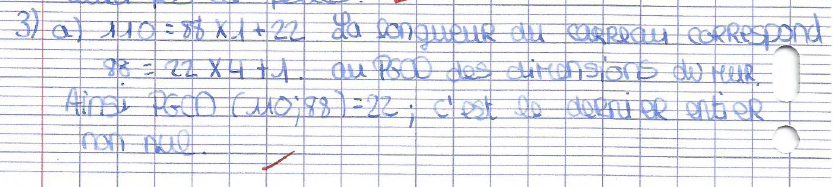 3) a) 110 = 88 x 1 + 22 La longueur du carreau correspond
88 = 22 x 4 + 1. au PGCD des dimensions du mur.
Ainsi PGCD (110;88) = 22 ; c'est le dernier entier
non nul.